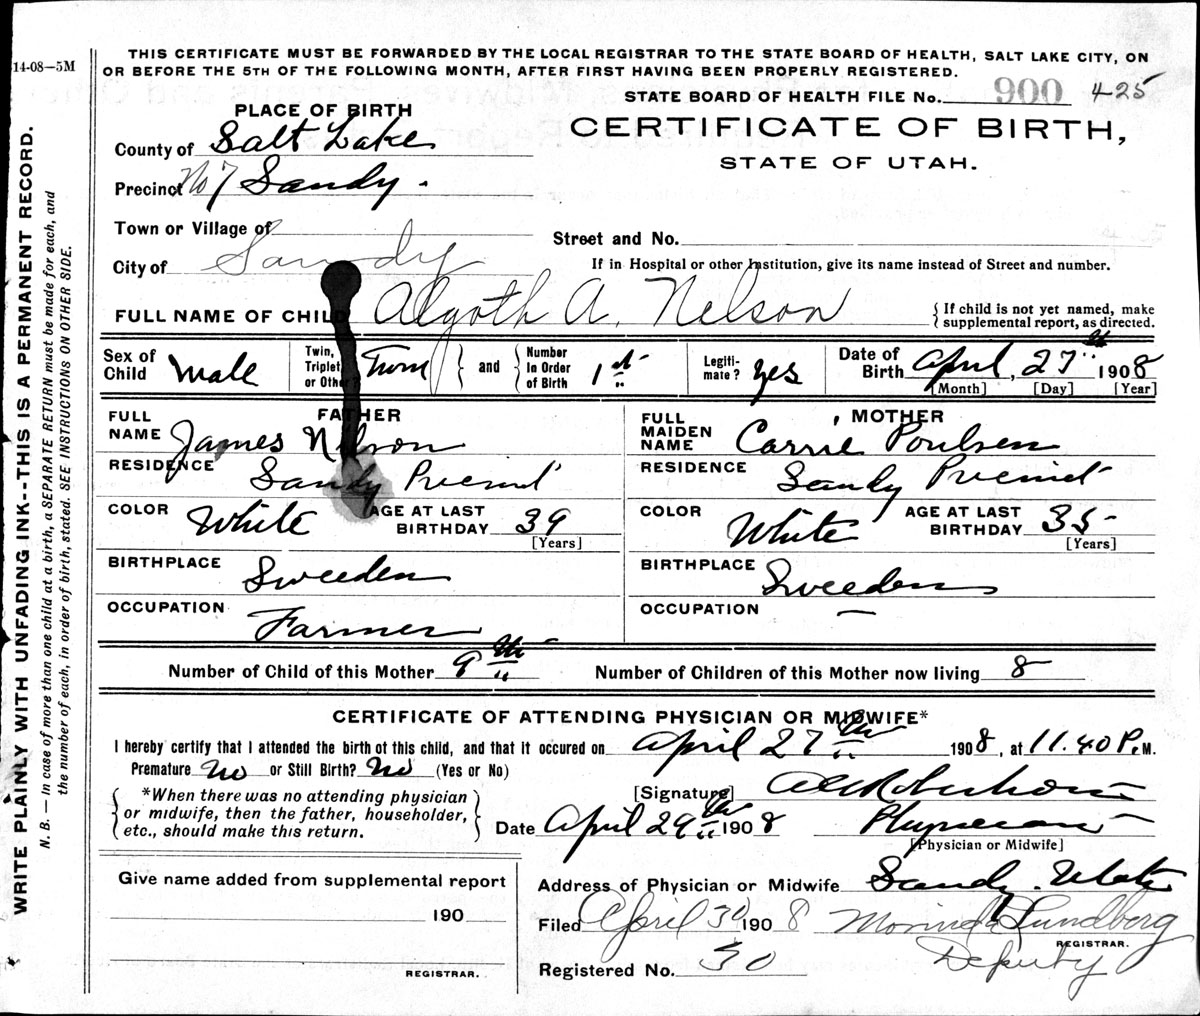 14-08—5M
THIS CERTIFICATE MUST BE FORWARDED BY THE LOCAL REGISTRAR TO THE STATE BOARD OF HEALTH, SALT LAKE CITY, ON
OR BEFORE THE 5TH OF THE FOLLOWING MONTH, AFTER FIRST HAVING BEEN PROPERLY REGISTERED.
STATE BOARD OF HEALTH FILE No. 900 425
PLACE OF BIRTH
CERTIFICATE OF BIRTH,
STATE OF UTAH.
County of Salt Lake
Precinct No 7 Sandy.
Town or Village of
Street and No.
City of Sandy
If in Hospital or other Institution, give its name instead of Street and number.
FULL NAME OF CHILD Algoth A. Nelson { If child is not yet named, make supplemental report, as directed.
Sex of Child Male Twin, Triplet, or Other Twin } and { Number In Order of Birth 1st Legiti-mate? Yes Date of Birth April, 27th 1908
[Month] [Day] [Year]
FATHER
FULL NAME James Nelson
RESIDENCE Sandy Precinct
COLOR White AGE AT LAST BIRTHDAY 39
[Years]
BIRTHPLACE Sweeden
OCCUPATION Farmer
MOTHER
FULL MAIDEN NAME Carrie Poulsen
RESIDENCE Sandy Precinct
COLOR White AGE AT LAST BIRTHDAY 35
[Years]
BIRTHPLACE Sweeden
OCCUPATION —
Number of Child of this Mother 9th Number of Children of this Mother now living 8
CERTIFICATE OF ATTENDING PHYSICIAN OR MIDWIFE*
I hereby certify that I attended the birth of this child, and that it occured on April 27th 1908, at 11.40 P.M.
Premature No or Still Birth? No (Yes or No)
{ *When there was no attending physician
or midwife, then the father, householder,
etc., should make this return. }
[Signature]
Date April 29th 1908 Physician
[Physician or Midwife]
Give name added from supplemental report
190
REGISTRAR.
Address of Physician or Midwife Sandy. Utah
Filed April 30 1908 Lundberg
REGISTRAR.
Deputy
Registered No. 30
WRITE PLAINLY WITH UNFADING INK--THIS IS A PERMANENT RECORD.
N. B. — In case of more than one child at a birth, a SEPARATE RETURN must be made for each, and
the number of each, in order of birth, stated. SEE INSTRUCTIONS ON OTHER SIDE.